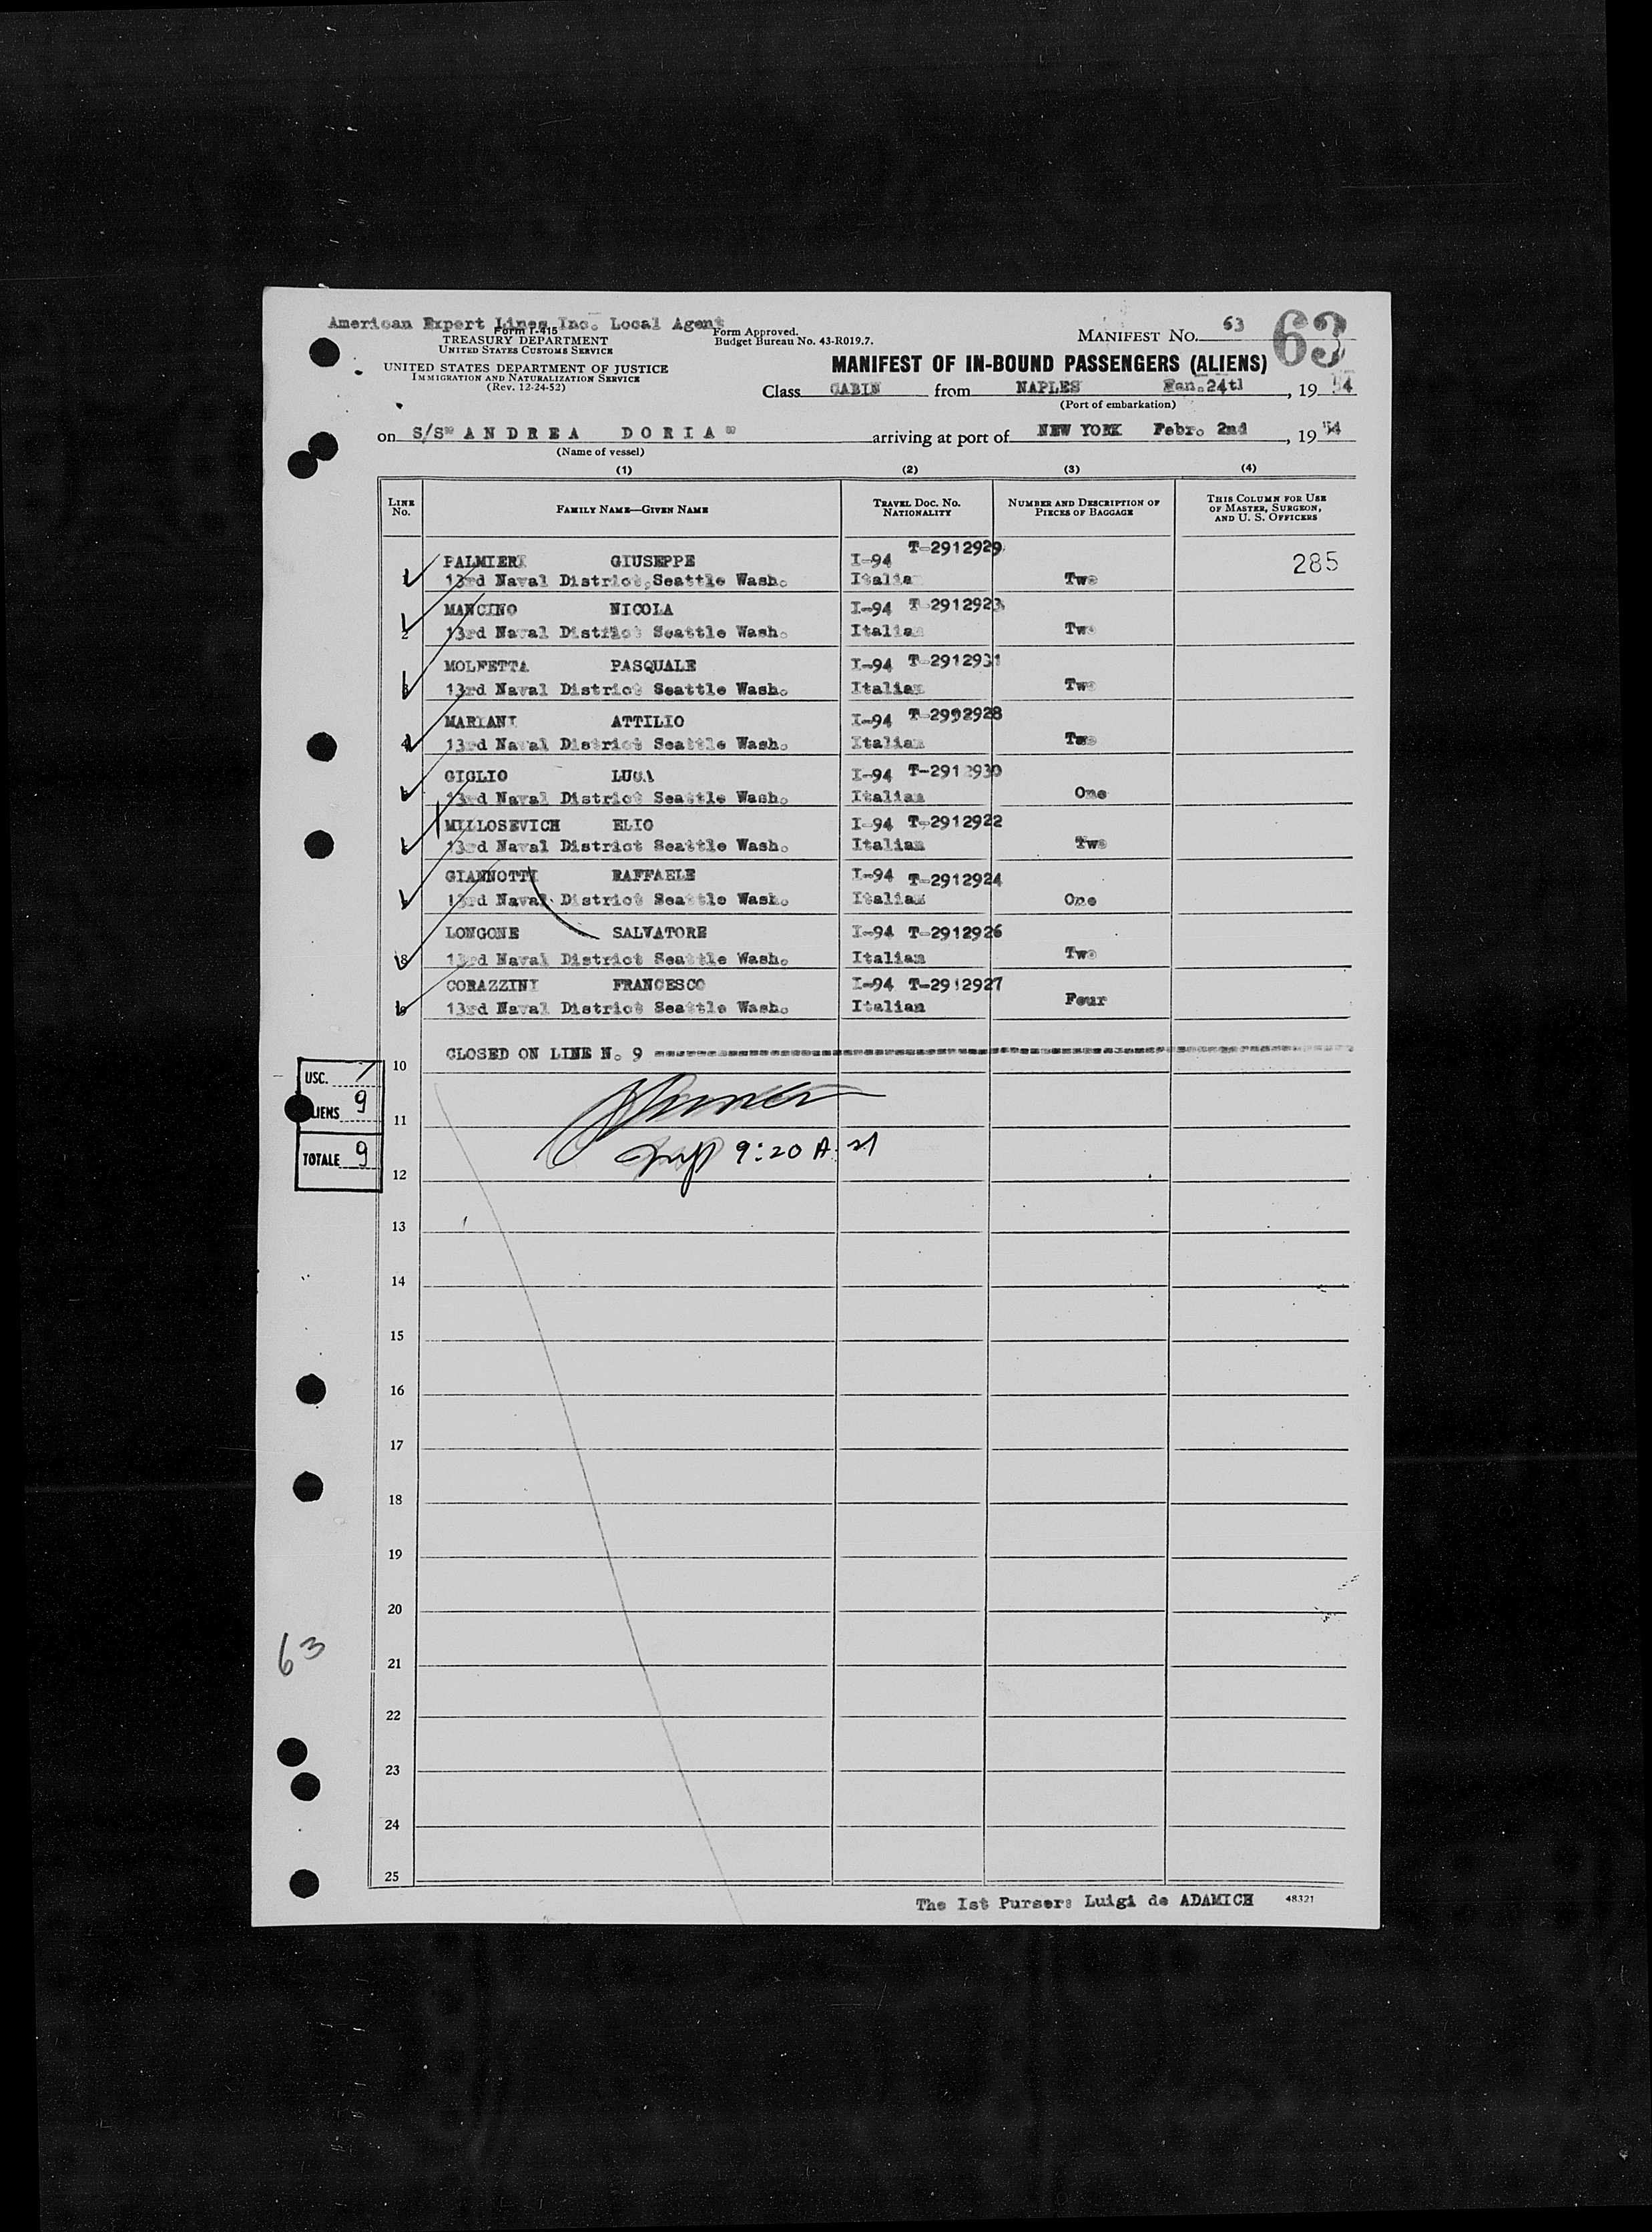 American Export Lines Inc. Local Agent
Form I-415
TREASURY DEPARTMENT
UNITED STATES CUSTOMS SERVICE
UNITED STATES DEPARTMENT OF JUSTICE
IMMIGRATION AND NATURALIZATION SERVICE
(Rev. 12-24-52)
Form Approved.
Budget Bureau No. 43-R019.7.
MANIFEST NO. 63
63
MANIFEST OF IN-BOUND PASSENGERS (ALIENS)
Class CABIN from NAPLES 24th, 19 54
(Port of embarkation)
on S/S" ANDREA DORIA" arriving at port of NEW YORK Febr. 2nd, 19 54
(Name of vessel)
(1) (2) (3) (4)
LINE No. FAMILY NAME—GIVEN NAME TRAVEL DOC. NO. NATIONALITY NUMBER AND DESCRIPTION OF PIECES OF BAGGAGE THIS COLUMN FOR USE OF MASTER, SURGEON, AND U. S. OFFICERS
1 PALMIERI GIUSEPPE I-94 T-2912929 285
13rd Naval District, Seattle Wash. Italian Two
2 MANCINO NICOLA I-94 T-2912923
13rd Naval District Seattle Wash. Italian Two
3 MOLFETTA PASQUALE I-94 T-2912931
13rd Naval District Seattle Wash. Italian Two
4 MARIANI ATTILIO I-94 T-2912928
13rd Naval District Seattle Wash. Italian Two
GIGLIO LUCA I-94 T-2912930
13rd Naval District Seattle Wash. Italian One
MILLOSEVICH ELIO I-94 T-2912922
13rd Naval District Seattle Wash. Italian Two
GIANNOTTI RAFFAELE I-94 T-2912924
13rd Naval District Seattle Wash. Italian One
LONGONE SALVATORE I-94 T-2912926
8 13rd Naval District Seattle Wash. Italian Two
CORAZZINI FRANCESCO I-94 T-2912927
9 13rd Naval District Seattle Wash. Italian Four
CLOSED ON LINE N. 9
10
USC. /
ALIENS 9
11
TOTALE 9
9:20 A.M
12
13
14
15
16
17
18
19
20
63
21
22
23
24
25
The 1st Purser: Luigi de ADAMICH 48321